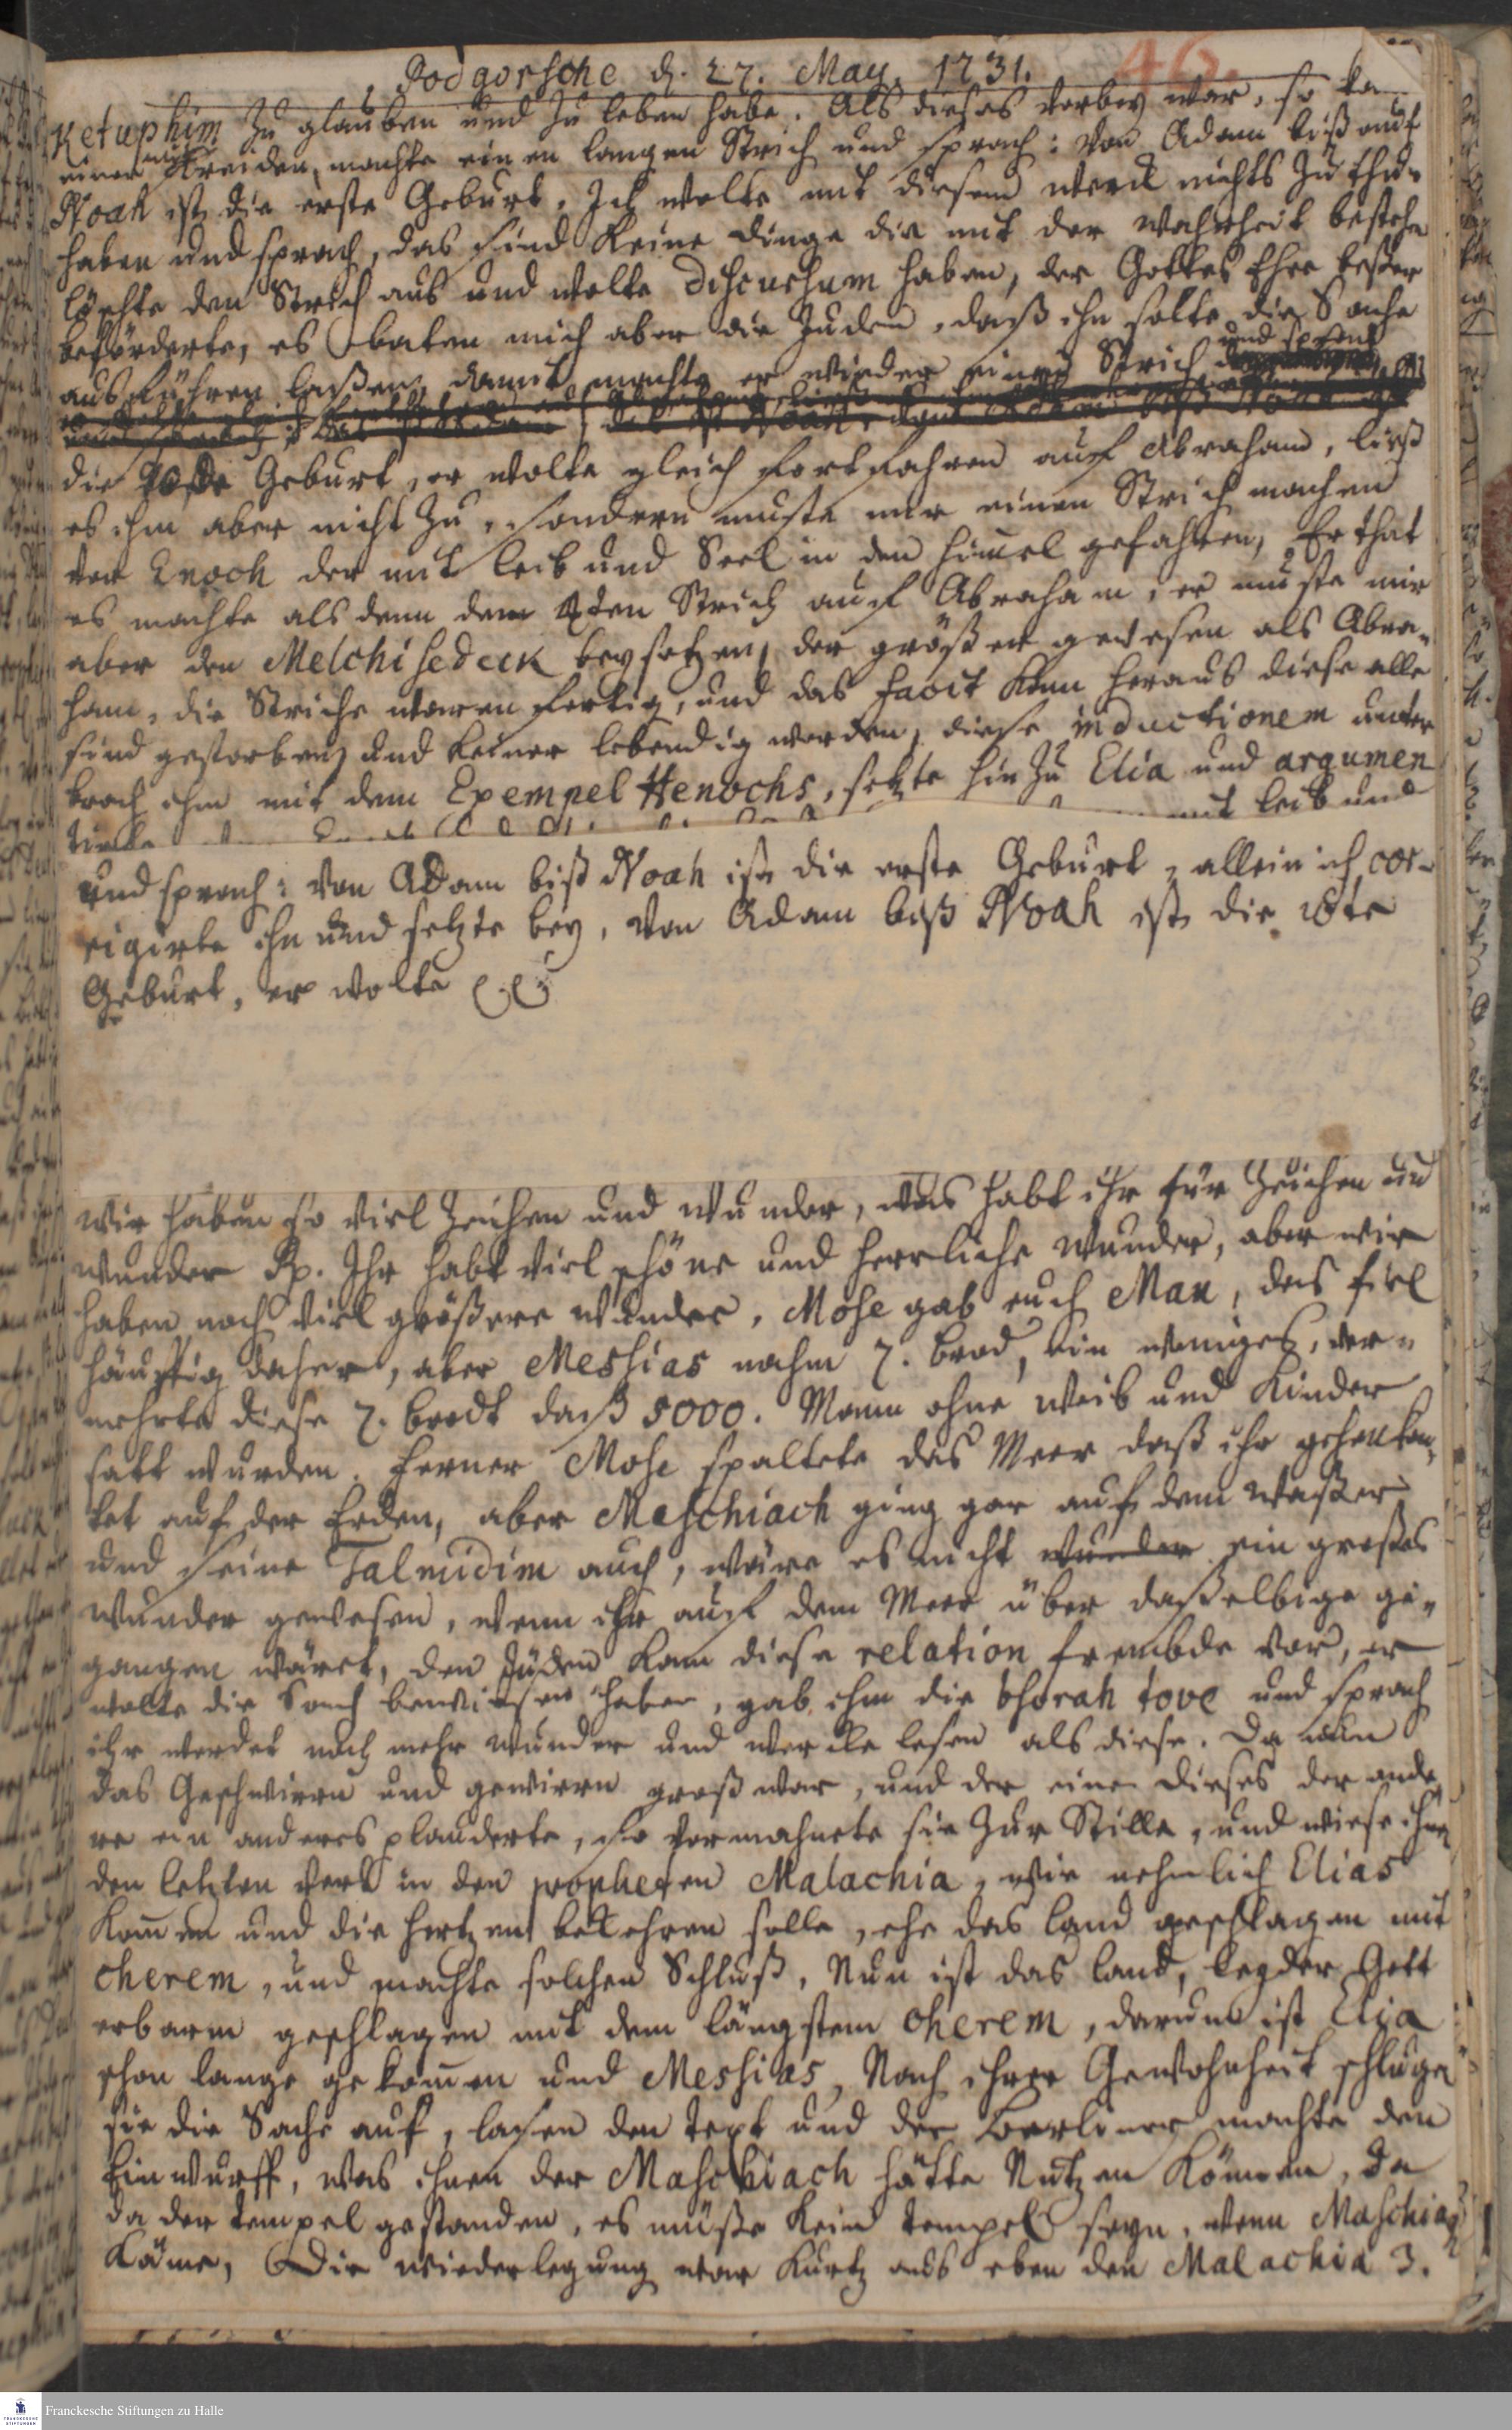 Podgorsche d. 27. May. 1731. 46.
Ketuphim zu glauben und zu leben habe. Als dieses vorbey war, so ka
einer mit Kreiden, machte einen langen Strich und sprach: von Adam biß auf
Noah ist die erste Geburt. Ich wolte mit diesem werck nichts zu thun
haben und sprach, das sind keine dinge die mit der Wahrheit bestehen
löschte den Strich aus und wolte discursum haben, der Gottes Ehre beßer
beförderte, es baten mich aber die Juden, daß ihn solte die Sache
ausführen laßen, damit machte er wieder einen Strich und sprach
die 10de Geburt, er wolte gleich fortfahren auf Abraham, ließ
es ihm aber nicht zu, sondern muste mir einen Strich machen
vor Enoch der mit leib und Seel in den himel gefahren, Er that
es machte als denn den 4den Strich auf Abraham, er muste mir
aber den Melchisedeck beysetzen, der größer gewesen als Abra-
ham, die Striche waren fertig, und das facit kam heraus diese alle
sind gestorben, und keiner lebendig worden, diese inductionem unter
brach ihm mit dem Exempel Henochs, setzte hinzu Elia und argumen
tirte mit leib und
und sprach: von Adam biß Noah ist die erste Geburt, allein ich cor-
rigirte ihn und setzte bey, von Adam biß Noah ist die 10te
Geburt, er wolte
Wir haben so viel Zeichen und Wunder, was habt ihr für Zeichen und
wunder Rp. Ihr habt viel schöne und herrliche Wunder, aber wir
haben noch viel größere Wunder, Mose gab euch Man, das fiel
häuffig daher, aber Messias nahm 7. brod, ein weniges, ver-
mehrte diese 7. brodt daß 5000. Mann ohne Weib und Kinder
satt wurden. ferner Mose spaltete das Meer daß ihr gehen kon-
tet auf der Erden, aber Maschiach ging gar auf dem Waßer
und seine Talmidim auch, wäre es nicht wunder ein großes
wunder gewesen, wenn ihr auf dem Meer über daßelbige ge-
gangen wäret, den Juden kam diese relation frembde vor, er
wolte die Sach bewiesen haben, gab ihm die thorah tove und sprach
ihr werdet noch mehr wunder und wercke lesen als diese. Da nun
das Geschwirre und gewirre groß war, und der eine dieses der ande
re ein anderes plauderte, so vermahnete sie zur Stille, und wiese ihnen
den letzten vers in den propheten Malachia, wie nehmlich Elias
kommen und die hertzen bekehren solle, ehe das land geschlagen mit
cherem, und machte solchen Schluß, Nun ist das land, leyder Gott
erbarm geschlagen mit dem längstem cherem, darum ist Elia
schon lange gekommen und Messias, Nach ihrer Gewohnheit schlugen
sie die Sache auf, lasen den text und der Berliner machte den
Einwurff, was ihnen der Maschiach hätte Nutzen können, da
da der tempel gestanden, es müße kein tempel seyn, wenn Maschiach
käme, Die wiederlegung war kurtz aus eben den Malachia 3.
Franckesche Stiftungen zu Halle